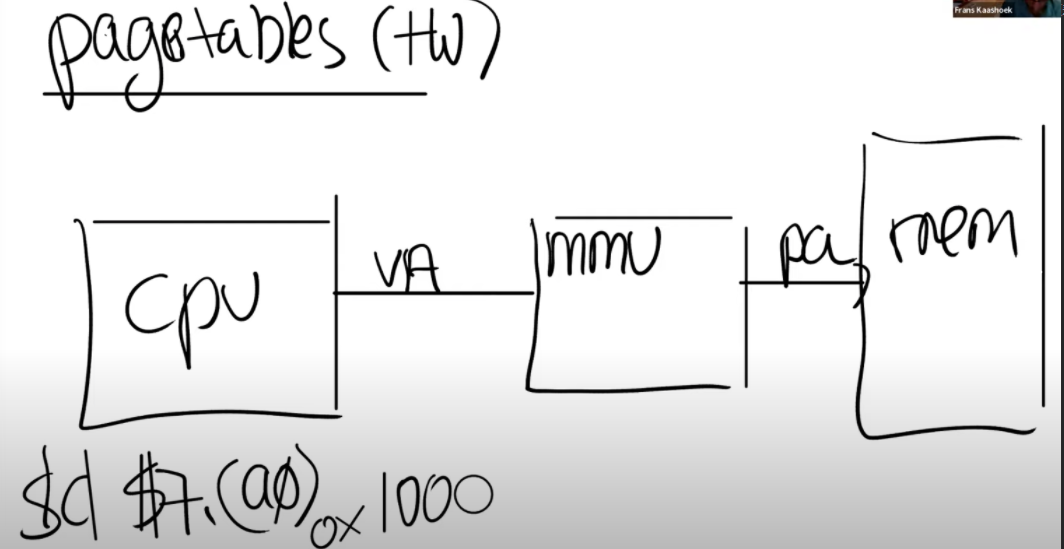 Frans Kaashoek
pagetables (HW)
CPU
VA
MMU
pa
mem
sd $7, (a0) 0x1000